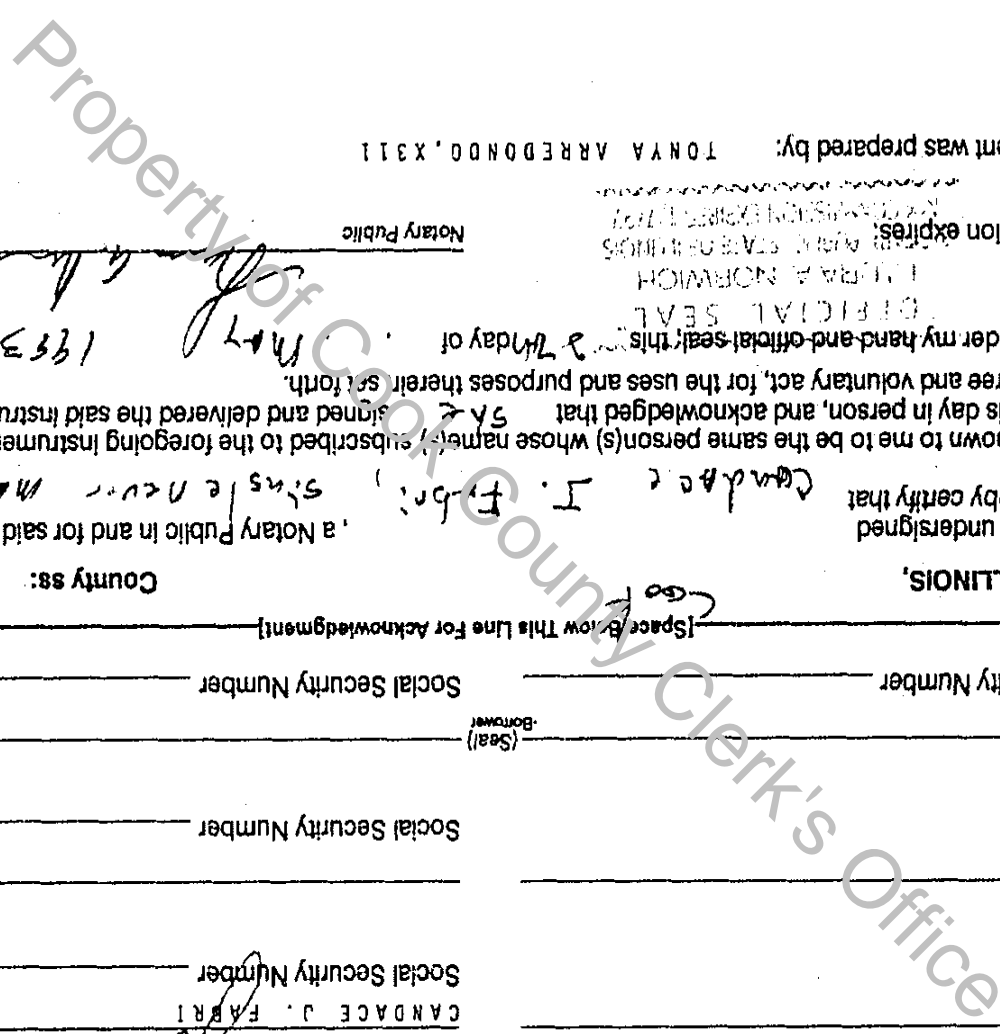 CANDACE J. FABRI
Social Security Number
Social Security Number
(Seal)
-Borrower
ty Number Social Security Number
[Space Below This Line For Acknowledgment]
LLINOIS, Cook County ss:
undersigned , a Notary Public in and for said
by certify that Candace J. Fabri, single never ma
own to me to be the same person(s) whose name(s) subscribed to the foregoing instrumen
is day in person, and acknowledged that she signed and delivered the said instru
ree and voluntary act, for the uses and purposes therein set forth.
der my hand and official seal, this 27th day of May 1993
OFFICIAL SEAL
LAURA A NORWICH
NOTARY PUBLIC STATE OF ILLINOIS
MY COMMISSION EXPIRES
ion expires:
Notary Public
ent was prepared by: TONYA ARREDONDO, X311
Property of Cook County Clerk's Office